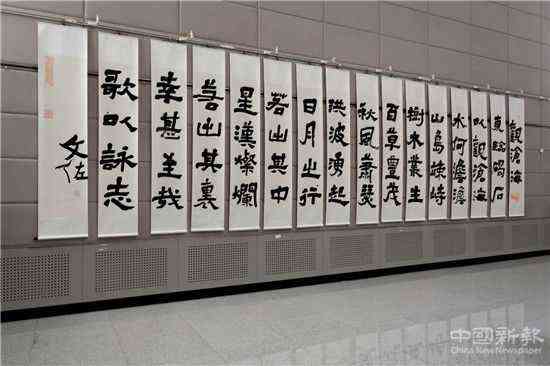 觀滄海
東臨碣石
以觀滄海
水何澹澹
山島竦峙
樹木叢生
百草豐茂
秋風蕭瑟
洪波湧起
日月之行
若出其中
星漢燦爛
若出其裏
幸甚至哉
歌以詠志
文佐
中國新報
China NewNewspaper